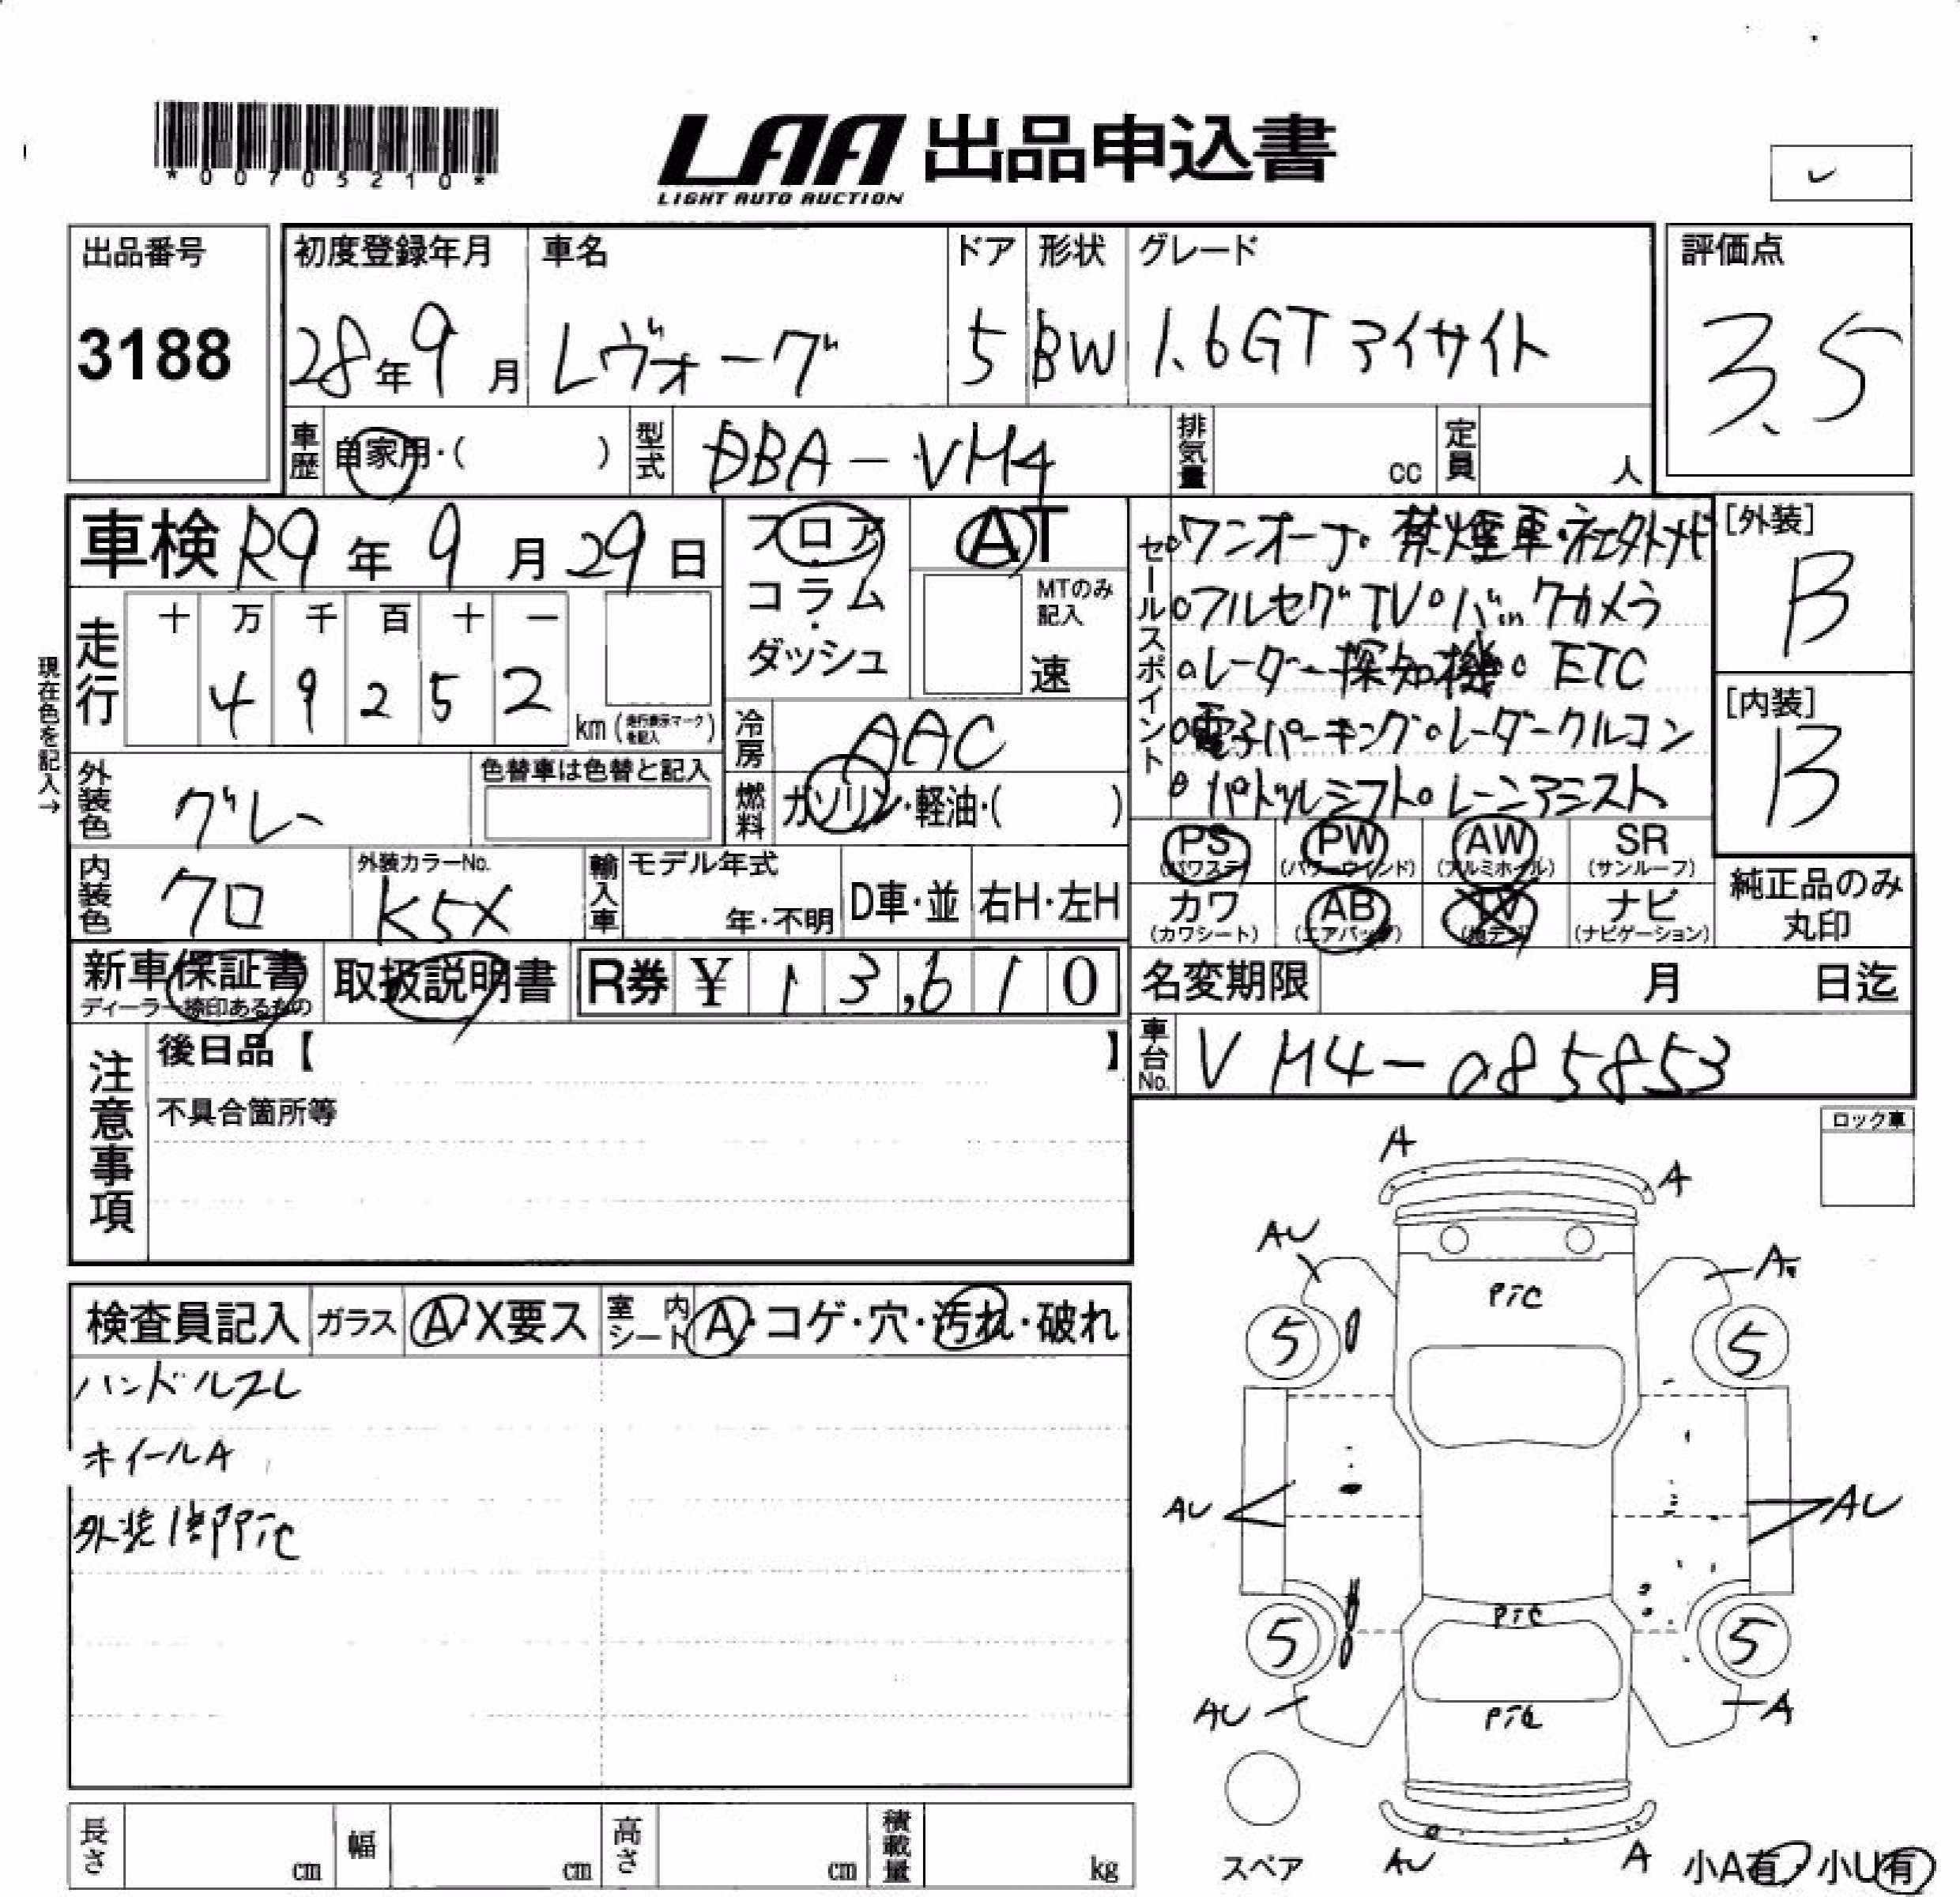 *00705210*
LAA 出品申込書
LIGHT AUTO AUCTION
出品番号
3188
初度登録年月
28年9月
車名
レヴォーグ
ドア
5
形状
BW
グレード
1.6GT アイサイト
評価点
3.5
車歴
自家用・( )
型式
DBA-VM4
排気量
cc
定員
人
車検 R9年9月29日
フロア
コラム
・
ダッシュ
AT
MTのみ
記入
速
セールスポイント
ワンオーナー・禁煙車・社外ナビ
・フルセグTV・バックカメラ
・レーダー探知機・ETC
・電子パーキング・レーダークルコン
・パドルシフト・レーンアシスト
[外装]
B
[内装]
B
現在色を記入→
走行
十 万 千 百 十 一
4 9 2 5 2
km (走行表示マークを記入)
冷房
AAC
燃料
ガソリン・軽油・( )
外装色
グレー
色替車は色替と記入
内装色
クロ
外装カラーNo.
K5X
輸入車
モデル年式
年・不明
D車・並
右H・左H
PS
(パワステ)
PW
(パワーウインド)
AW
(アルミホイル)
SR
(サンルーフ)
カワ
(カワシート)
AB
(エアバッグ)
TV
(地デジ)
ナビ
(ナビゲーション)
純正品のみ
丸印
新車保証書
ディーラー捺印あるもの
取扱説明書
R券 ¥ 1 3,6 1 0
名変期限 月 日迄
車台No.
VM4-085853
注意事項
後日品【 】
不具合箇所等
ロック車
検査員記入
ガラス
A・X要ス
室内シート
A・コゲ・穴・汚れ・破れ
ハンドルスレ
ホイールA
外装1部Pitc
A
A
AU
A
Pitc
5
5
AU
AU
Pitc
5
5
AU
A
Pitc
スペア
AU
A
小A有・小U有
長さ
cm
幅
cm
高さ
cm
積載量
kg